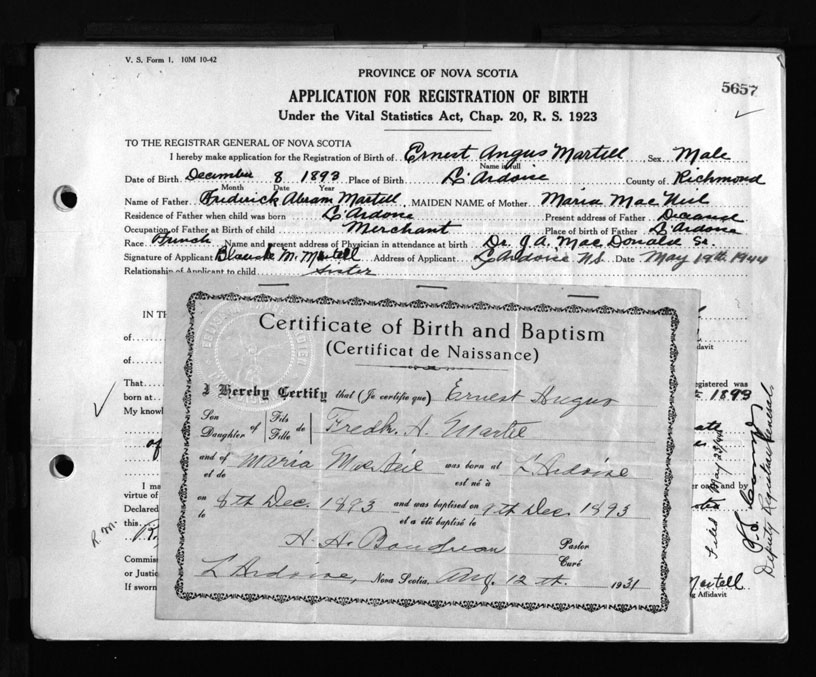 V. S. Form 1. 10M 10-42
PROVINCE OF NOVA SCOTIA
5657
APPLICATION FOR REGISTRATION OF BIRTH
Under the Vital Statistics Act, Chap. 20, R. S. 1923
TO THE REGISTRAR GENERAL OF NOVA SCOTIA
I hereby make application for the Registration of Birth of Ernest Angus Martell Sex Male
Name in full
Date of Birth December 8 1893 Place of Birth L'Ardoise County of Richmond
Month Date Year
Name of Father Frederick Abram Martell MAIDEN NAME of Mother Maria Mac Neil
Residence of Father when child was born L'Ardoise Present address of Father Deceased
Occupation of Father at Birth of child Merchant Place of birth of Father L'Ardoise
Race French Name and present address of Physician in attendance at birth Dr. J. A. Mac Donald Sr.
Signature of Applicant Blanche M. Martell Address of Applicant L'Ardoise N.S. Date May 19th 1944
Relationship of Applicant to child Sister
IN TH
of
of
davit
That
egistered was
born at
1893
My know
I ma
virtue of
Declared
this
R. M.
Commiss
or Justic
If sworn
Martell
g Affidavit
Filed May 23/44
Deputy Registrar General
Certificate of Birth and Baptism
(Certificat de Naissance)
I Hereby Certify that (Je certifie que) Ernest Angus
Son Daughter of Fils Fille de Fredk. A. Martel
and of et de Maria McNeil was born at est né à L'Ardoise
on le 8th Dec. 1893 and was baptised on et a été baptisé le 9th Dec. 1893
A. H. Boudreau Pastor Curé
L'Ardoise, Nova Scotia, Aug. 12th. 1931